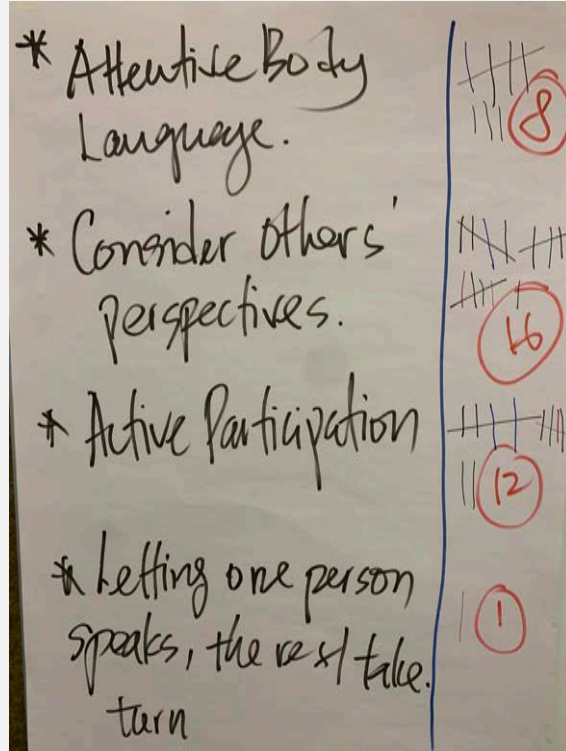 * Attentive Body
Language.
8
* Consider others'
perspectives.
16
* Active Participation
12
* Letting one person
speaks, the rest take.
turn
1